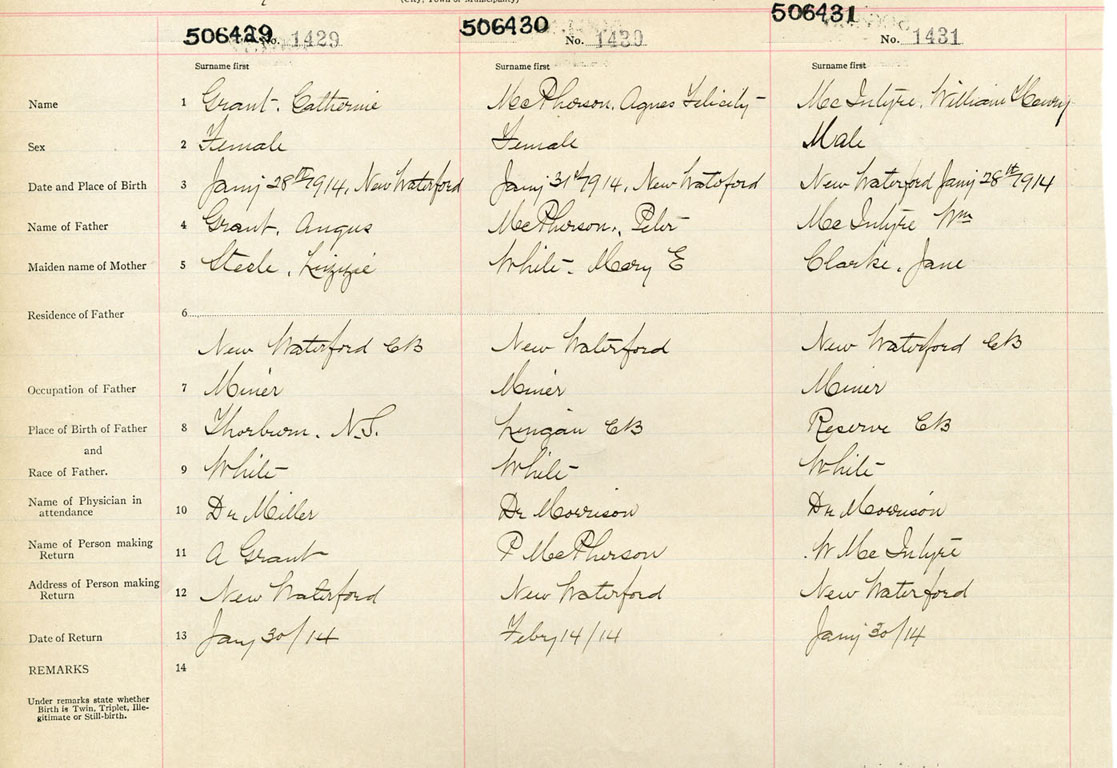 (City, Town or Municipality)
506429 506430 506431
No. 1429 No. 1430 No. 1431
Surname first Surname first Surname first
Name 1 Grant, Catherine McPherson, Agnes Felicity McIntyre, William Henry
Sex 2 Female Female Male
Date and Place of Birth 3 Jany 28th 1914, New Waterford Jany 31st 1914, New Waterford New Waterford Jany 28th 1914
Name of Father 4 Grant, Angus McPherson, Peter McIntyre Wm
Maiden name of Mother 5 Steele, Lizzie White, Mary E Clarke, Jane
Residence of Father 6
New Waterford CB New Waterford New Waterford CB
Occupation of Father 7 Miner Miner Miner
Place of Birth of Father 8 Thorburn. N.S. Lingan CB Reserve CB
and
Race of Father. 9 White White White
Name of Physician in
attendance 10 Dr Miller Dr Morrison Dr Morrison
Name of Person making
Return 11 A Grant P McPherson W McIntyre
Address of Person making
Return 12 New Waterford New Waterford New Waterford
Date of Return 13 Jany 30/14 Feby 14/14 Jany 30/14
REMARKS 14
Under remarks state whether
Birth is Twin, Triplet, Ille-
gitimate or Still-birth.